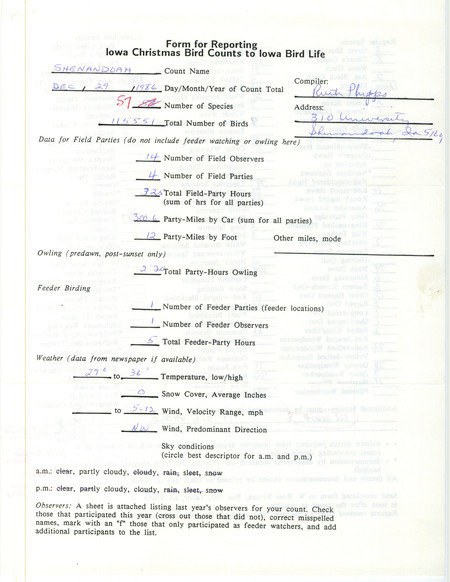 Form for Reporting
Iowa Christmas Bird Counts to Iowa Bird Life
SHENANDOAH Count Name
DEC, 29, 1986 Day/Month/Year of Count Total
Compiler:
Ruth Phipps
57 Number of Species
Address:
310 University
115551 Total Number of Birds
Shenandoah, Ia 516
Data for Field Parties (do not include feeder watching or owling here)
14 Number of Field Observers
4 Number of Field Parties
Total Field-Party Hours
(sum of hrs for all parties)
300.6 Party-Miles by Car (sum for all parties)
12 Party-Miles by Foot Other miles, mode
Owling (predawn, post-sunset only)
Total Party-Hours Owling
Feeder Birding
1 Number of Feeder Parties (feeder locations)
1 Number of Feeder Observers
5 Total Feeder-Party Hours
Weather (data from newspaper if available)
27° to 36° Temperature, low/high
0 Snow Cover, Average Inches
to 5-12 Wind, Velocity Range, mph
NW Wind, Predominant Direction
Sky conditions
(circle best descriptor for a.m. and p.m.)
a.m.: clear, partly cloudy, cloudy, rain, sleet, snow
p.m.: clear, partly cloudy, cloudy, rain, sleet, snow
Observers: A sheet is attached listing last year's observers for your count. Check
those that participated this year (cross out those that did not), correct misspelled
names, mark with an "f" those that only participated as feeder watchers, and add
additional participants to the list.